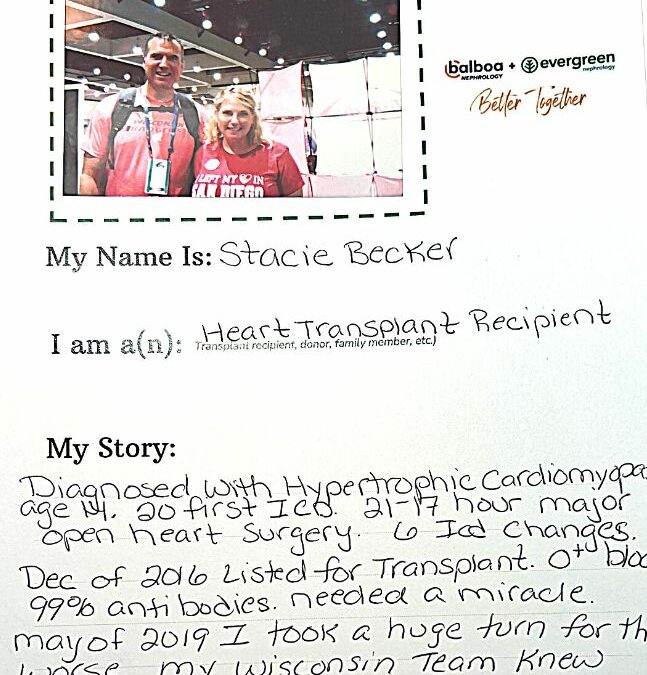 balboa + evergreen
NEPHROLOGY nephrology
Better Together
I LEFT MY IN
SAN DIEGO
My Name Is: Stacie Becker
I am a(n): Heart Transplant Recipient
Transplant recipient, donor, family member, etc.)
My Story:
Diagnosed with Hypertrophic Cardiomyopa
age 14. 20 first ICD. 21-17 hour major
open heart surgery. 6 Icd changes.
Dec of 2016 Listed for Transplant. O+ bloo
99% antibodies. needed a miracle.
may of 2019 I took a huge turn for th
worse my Wisconsin Team Knew